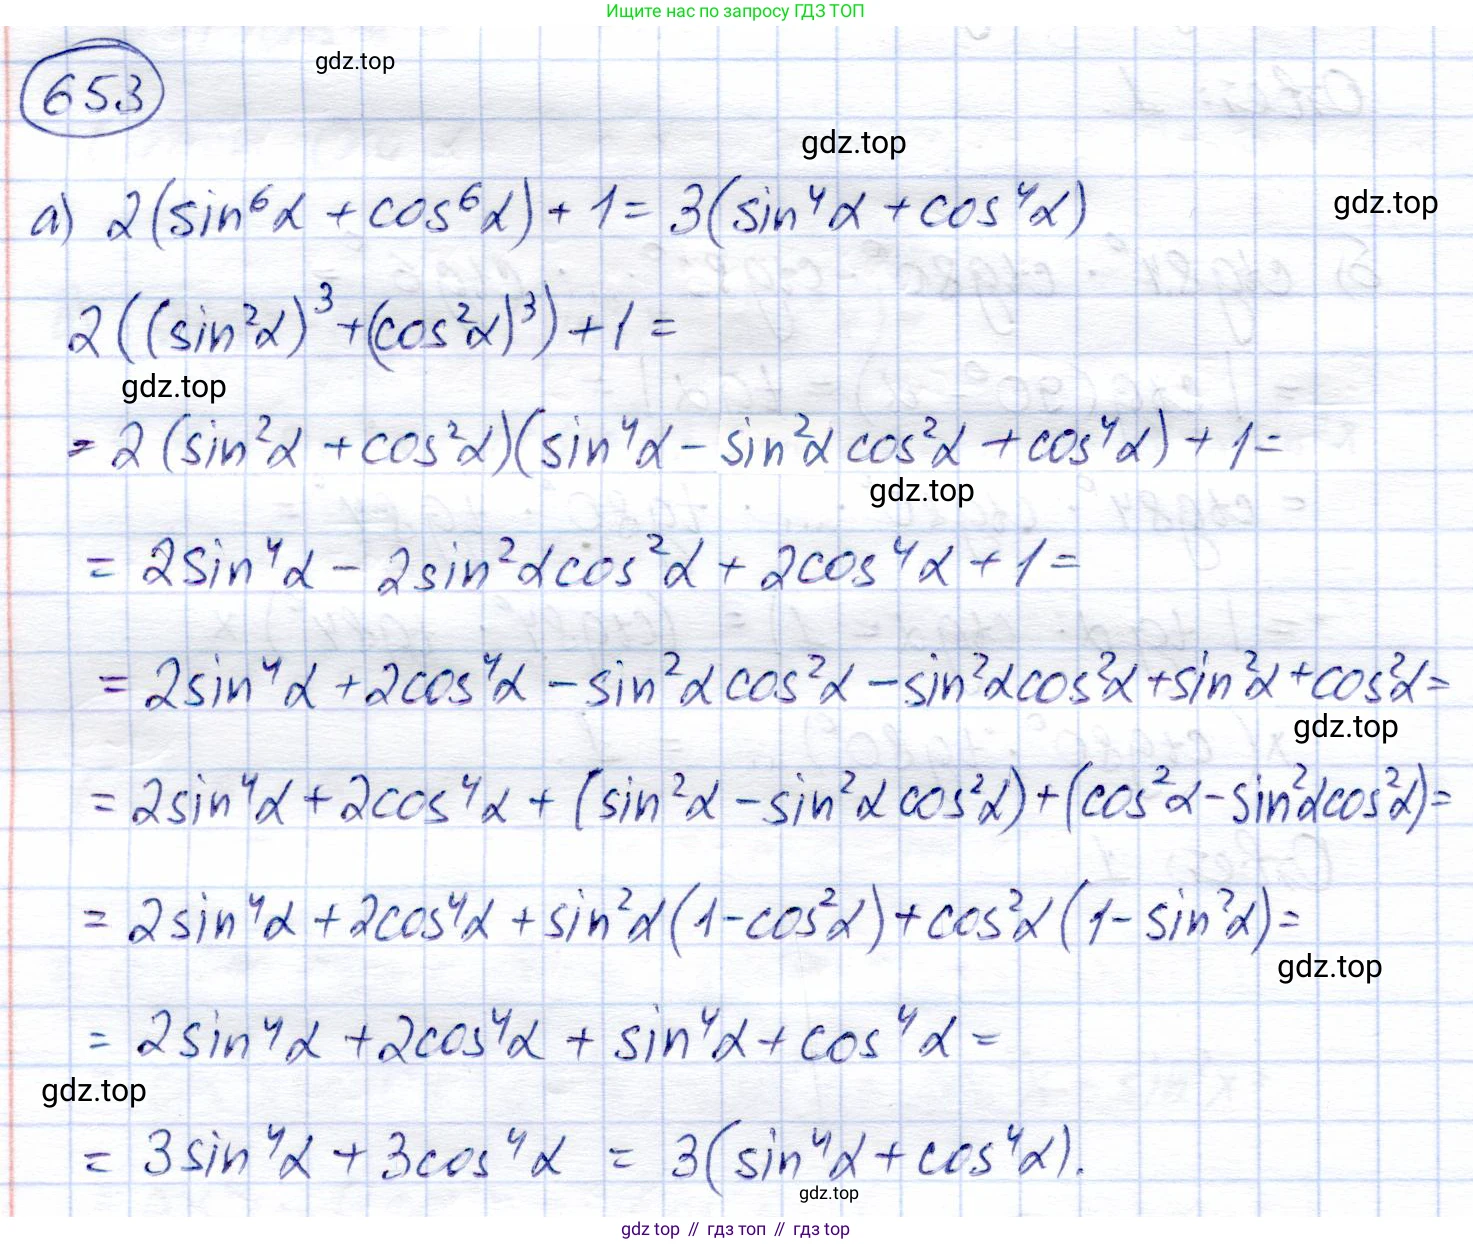 Ищите нас по запросу ГДЗ ТОП
653
gdz.top
gdz.top
а) 2(sin⁶α + cos⁶α) + 1 = 3(sin⁴α + cos⁴α)
gdz.top
2((sin²α)³ + (cos²α)³) + 1 =
gdz.top
= 2(sin²α + cos²α)(sin⁴α - sin²α cos²α + cos⁴α) + 1 =
gdz.top
= 2sin⁴α - 2sin²α cos²α + 2cos⁴α + 1 =
= 2sin⁴α + 2cos⁴α - sin²α cos²α - sin²α cos²α + sin²α + cos²α =
gdz.top
= 2sin⁴α + 2cos⁴α + (sin²α - sin²α cos²α) + (cos²α - sin²α cos²α) =
= 2sin⁴α + 2cos⁴α + sin²α(1 - cos²α) + cos²α(1 - sin²α) =
gdz.top
= 2sin⁴α + 2cos⁴α + sin⁴α + cos⁴α =
gdz.top
= 3sin⁴α + 3cos⁴α = 3(sin⁴α + cos⁴α).
gdz.top
gdz top // гдз топ // гдз top